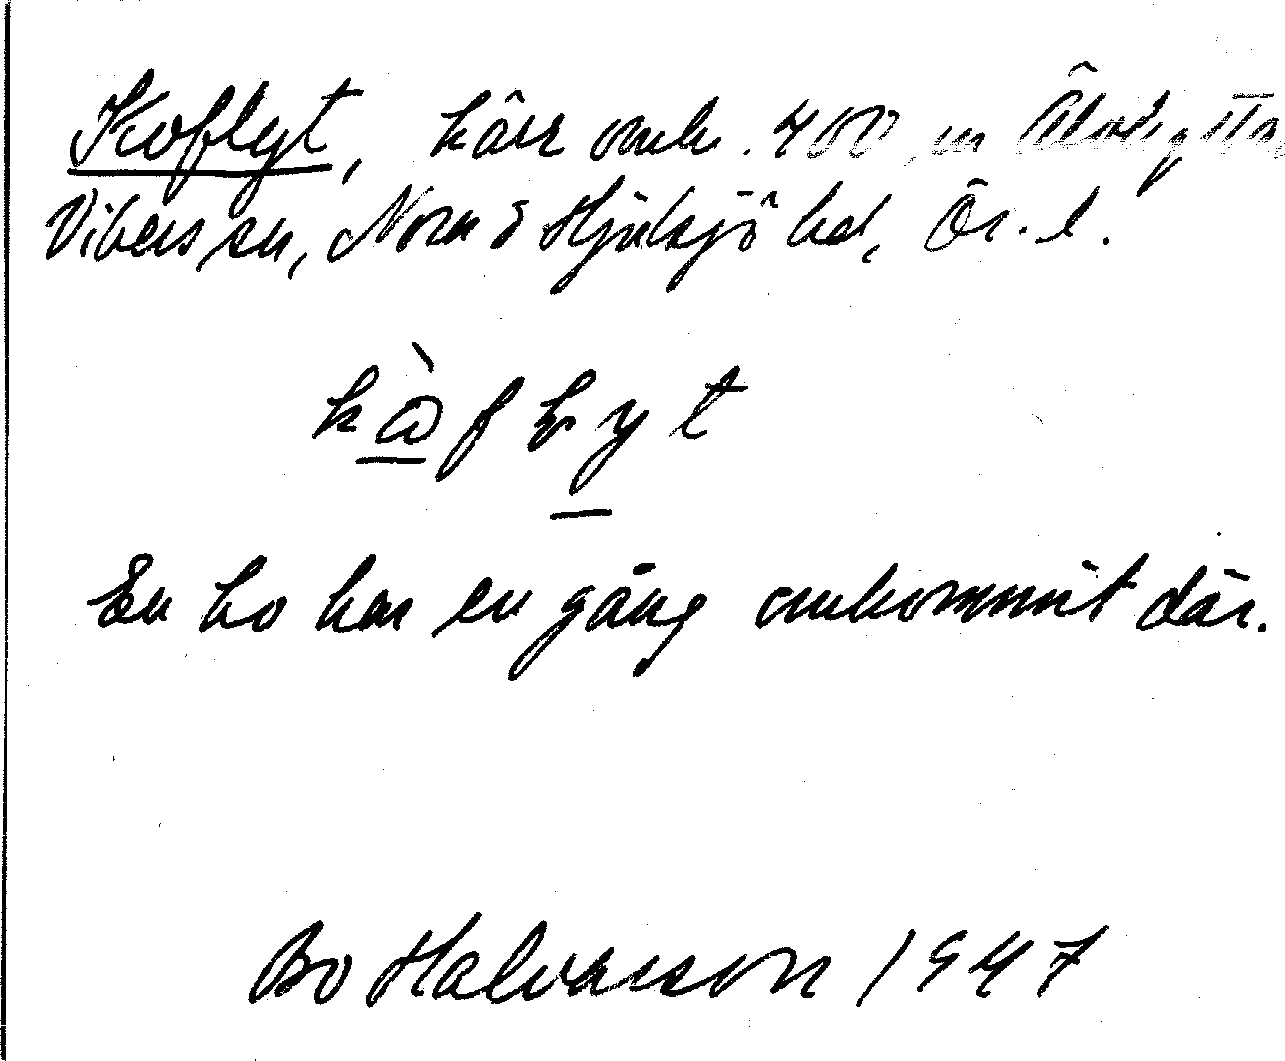 Koflyt, kärr omkr. 400 m
Viker sn, Nora o Hjulsjö bd, Ör. l.
En ko har en gång omkommit där.
Bo Halvarsson 1947